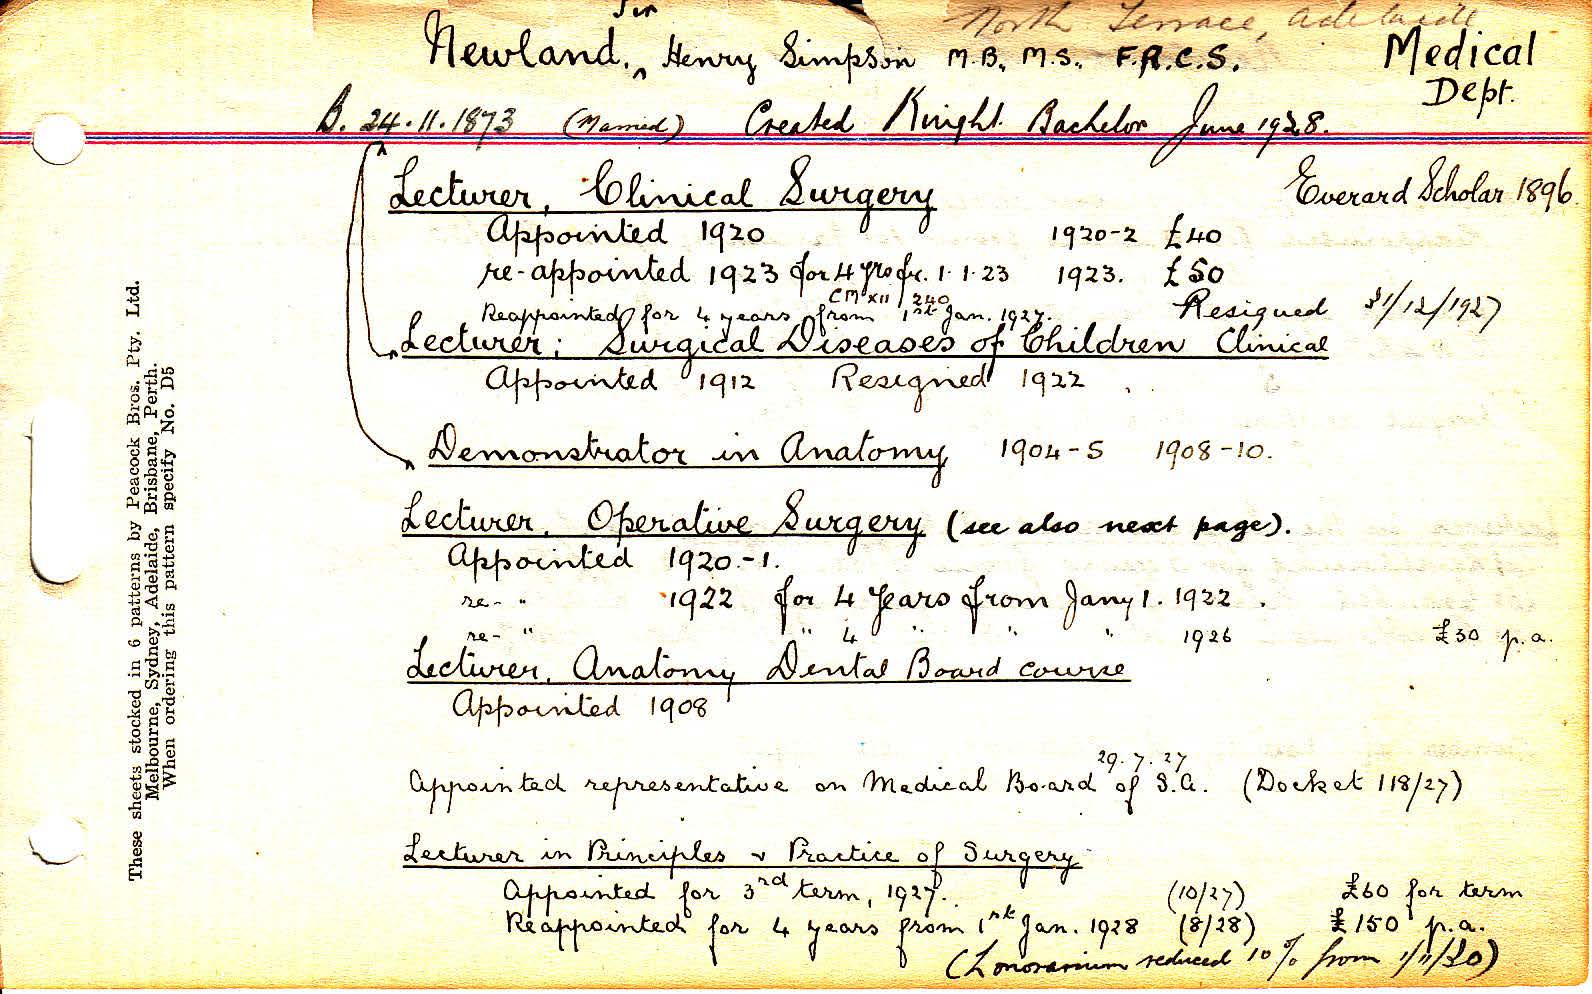 North Terrace, Adelaide
Sir
Newland, ^ Henry Simpson M.B., M.S., F.R.C.S. Medical
Dept.
B. 24.11.1873 (Married) Created Knight Bachelor June 1928.
Lecturer, Clinical Surgery Everard Scholar 1896.
Appointed 1920 1920-2 £40
re-appointed 1923 for 4 yrs fr. 1.1.23 1923. £50
CM XII / 240
Reappointed for 4 years from 1st Jan. 1927. Resigned 31/12/1927
Lecturer; Surgical Diseases of Children Clinical
Appointed 1912 Resigned 1922
Demonstrator in Anatomy 1904-5 1908-10.
Lecturer, Operative Surgery (see also next page).
Appointed 1920-1.
re- " 1922 for 4 years from Jany 1. 1922.
re- " " 4 " " " 1926 £30 p.a.
Lecturer, Anatomy Dental Board course
Appointed 1908
29.7.27
Appointed representative on Medical Board of S.A. (Docket 118/27)
Lecturer in Principles & Practice of Surgery
Appointed for 3rd term, 1927. (10/27) £60 for term
Reappointed for 4 years from 1st Jan. 1928 (8/28) £150 p.a.
(Honorarium reduced 10% from 1/11/30)
These sheets stocked in 6 patterns by Peacock Bros. Pty. Ltd.
Melbourne, Sydney, Adelaide, Brisbane, Perth.
When ordering this pattern specify No. D5